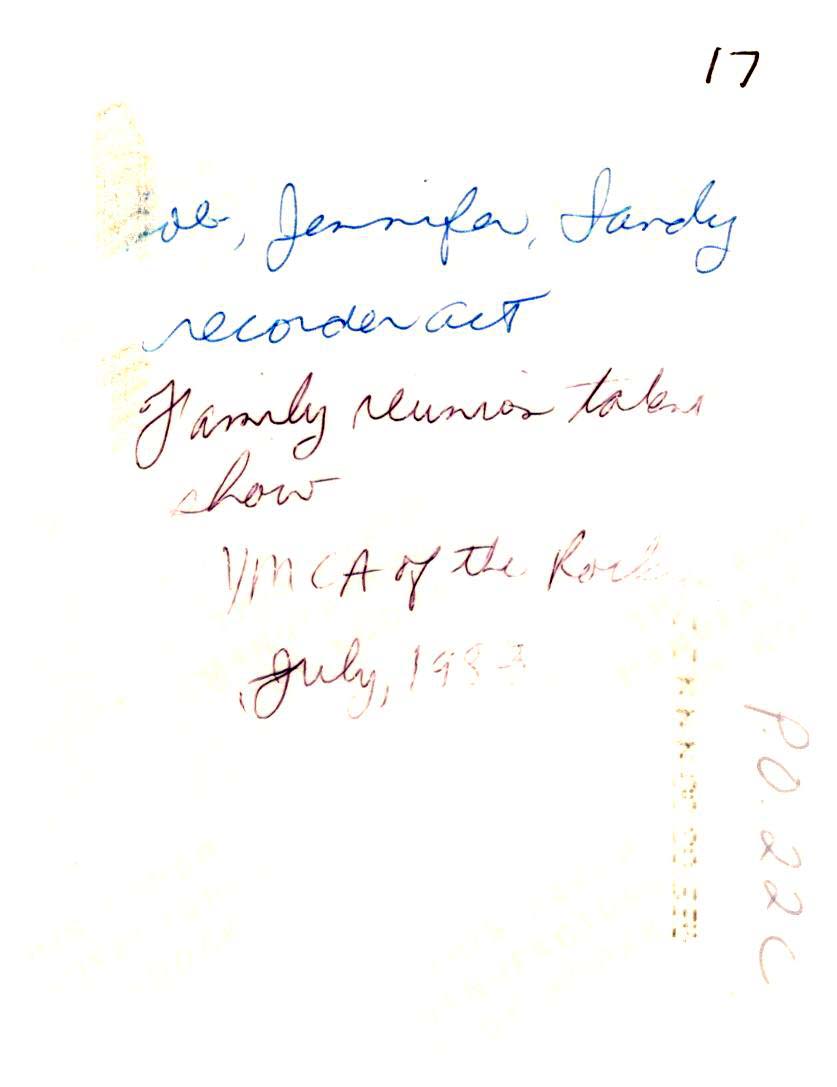 17
ob, Jennifer, Sandy
recorder act
Family reunion talen
show
YMCA of the Rock
July, 1983
P.O. 22C